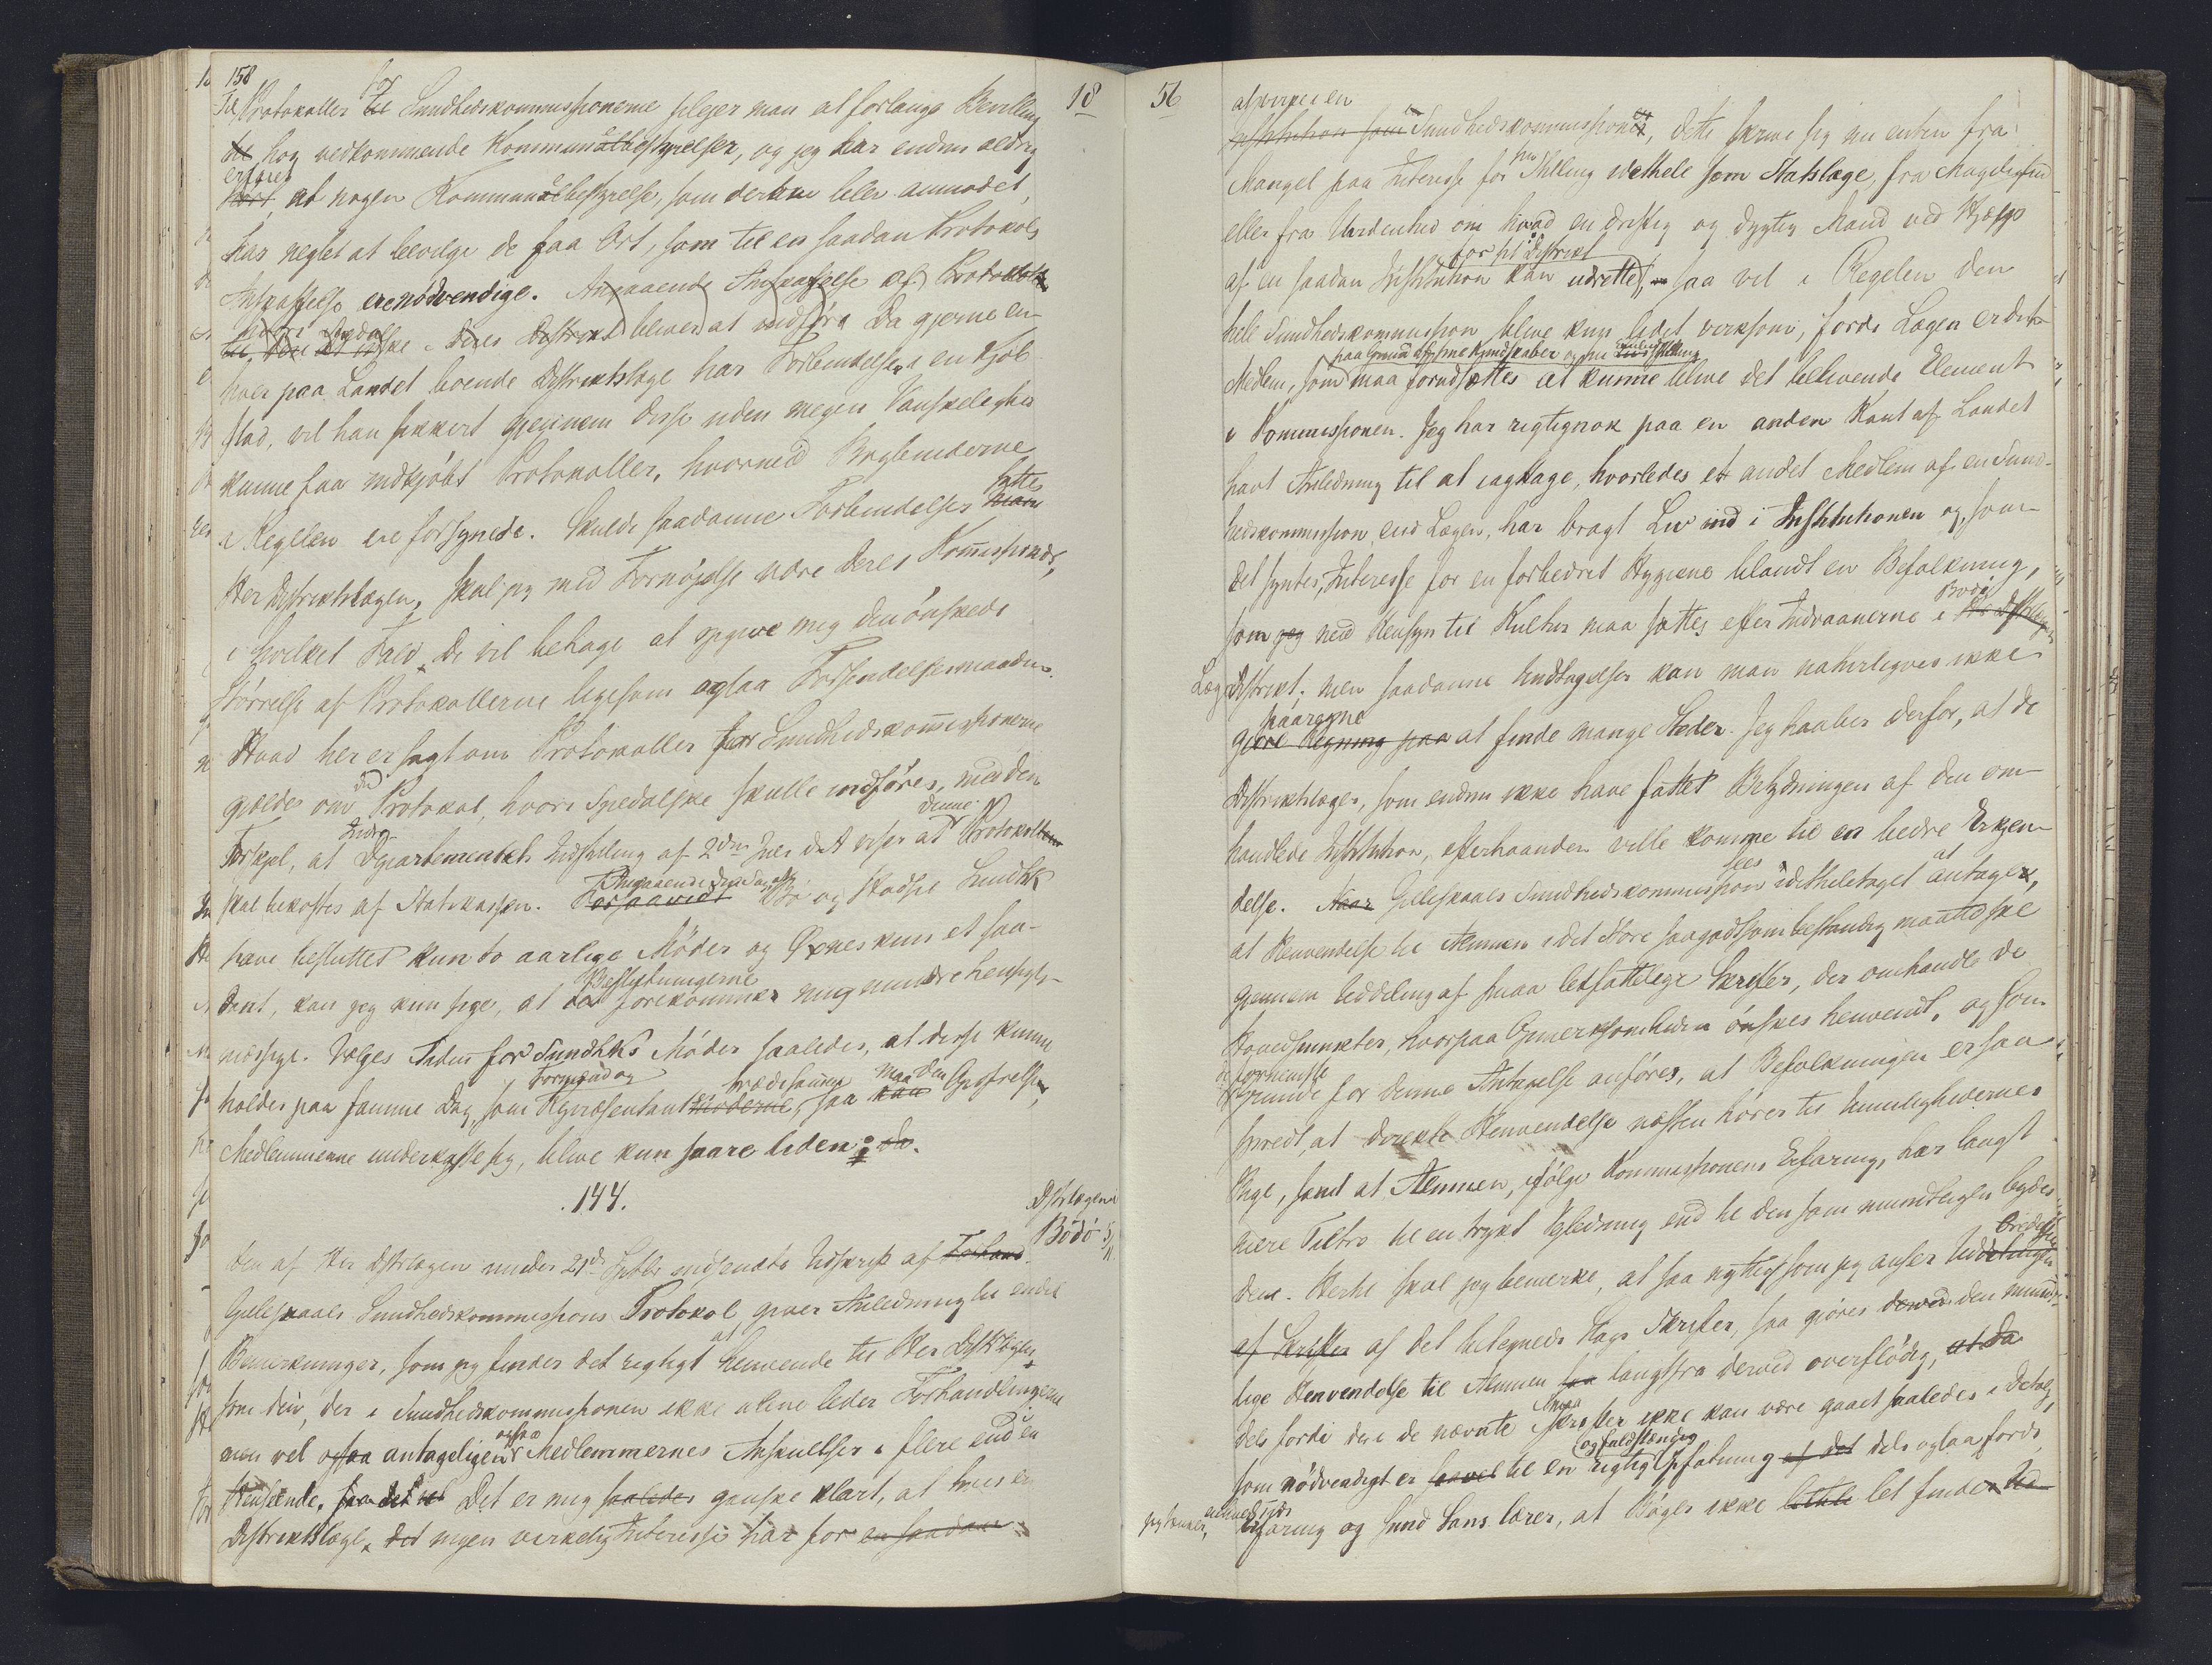 158
Til Protokoller til for Sundhedskommissionerne plejer man at forlange Bevilling
til, hos vedkommende Kommunalbestyrelser, og jeg har endnu aldrig
hørt erfaret at nogen Kommunalbestyrelse, som derom blev anmodet,
har negtet at bevilge de faa Ort, som til en saadan Protokols
Anskaffelse ere nødvendige. Angaaende Anskaffelse af Protokoller
hvori Spedalske i Deres Distrikt blive at indføre Da gjerne en-
hver paa Landet boende Distriktslæge har Forbindelser i en Kjøb-
stad, vil han sikkert gjennem disse uden megen Vanskelighed
kunne faa indkjøbt Protokoller, hvormed Bogbinderne
i Regelen ere forsynede. Skulde saadanne Forbindelser savne fattes
Her Distriktslægen, skal jeg med Fornøjelse være Deres Kommissionær,
i hvilket Fald De vil behage at opgive mig den ønskede
Størrelse af Protokollerne ligesom ogsaa Forsendelsesmaaden.
Hvad her er sagt om Protokoller for Sundhedskommissionerne
gjelder om den Protokol, hvori Spedalske skulle indføres, med den
Forskjel, at Indredepartementets Indstilling af 2den Juli d. A. viser at denne Protokol
skal bekostes af Statskassen. Forsaavidt Angaaende den Sag at Bø og Hadsel Sundhk
have besluttet kun to aarlige Møder og Øxnes kun et saa-
dant, kan jeg kun sige, at det Beslutningerne forekommer mig mindre hensigts-
mæssige. Vælges Tiden for Sundhks Møder saaledes, at disse kunne
holdes paa samme Dag, som Formænd og Repræsentantmøderne træde sammen, saa kan maa den Opofrelse,
Medlemmerne underkaste sig, blive kun saare liden.
.144.
Distrlægen i
Bodø 5/11
Den af Her Distrlægen under 21de Septbr indsendte Udskrift af Forhand
Gilleskaals Sundhedskommissions Protokol giver Anledning til endel
Bemerkninger, som jeg finder det rigtigt at henvende til Her Distrlægen
som den, der i Sundhedskommissionen ikke alene leder Forhandlingerne
men vel ogsaa antageligen ogsaa Medlemmernes Anskuelser i flere end en
Henseende. Det er mig saaledes ganske klart, at hvis en
Distriktslæge ingen virkelig Interesse har for en saadan
18
56
at virke i en
Institution som Sundhedskommissionen, dette skrive sig nu enten fra
Mangel paa Interesse for sin Stilling idethele som Statslæge, fra Magelighed
eller fra Uvidenhed om hvad en driftig og dygtig Mand ved Hjælp
af en saadan Institution kan udrette for sit Distrikt, saa vil i Regelen den
hele Sundhedskommission blive kun lidet virksom, fordi Lægen er det
Medlem, som paa Grund af sine Kundskaber og sin Livsstilling maa forudsættes at kunne blive det belivende Element
i Kommissionen. Jeg har rigtignok paa en anden Kant af Landet
havt Anledning til at iagttage, hvorledes et andet Medlem af en Sund-
hedskommission, end Lægen, har bragt Liv ind i Institutionen og, som
det syntes, Interesse for en forbedret Hygiene blandt en Befolkning,
som jeg med Hensyn til Kultur maa sættes efter Indvaanerne i Bodø
Lægedistrikt; men saadanne Undtagelser kan man naturligvis ikke
gjøre Regning paa paaregne at finde mange Steder. Jeg haaber derfor, at de
Distriktslæger, som endnu ikke have fattet Betydningen af den om-
handlede Institution, efterhaanden ville komme til en bedre Erkjen-
delse. Naar Gilleskaals Sundhedskommission sees idetheletaget at antage,
at Henvendelse til Almuen i det Store saagodtsom bestandig maatte ske
gjennem Uddeling af smaa letfattelige Skrifter, der omhandle de
Hovedpunkter, hvorpaa Opmerksomheden ønskes henvendt, og som
de fornemste Grunde for denne Antagelse anføres, at Befolkningen er saa
spredt, at direkte Henvendelse næsten hører til Umulighedernes
Rige, samt at Almuen, ifølge Kommissionens Erfaring, har langt
mere Tiltro til en trykt Vejledning end til den som mundtligen bydes
den. Hertil skal jeg bemerke, at saa nyttig som jeg anser Uddelingen Udbredelsen
af Skrifter af det betegnede Slags Skrifter, saa gjøres derved den mundt-
lige Henvendelse til Almuen saa langtfra derved overflødig, at da
dels fordi der i de nævnte smaa Skrifter ikke kan være gaaet saaledes i Detalj,
som nødvendigt er saavel til en rigtig og fuldstændig Opfatning af det dels ogsaa fordi,
jeg tænker, enhver Erfaring og sund Sans lærer, at Bøger ikke let finde